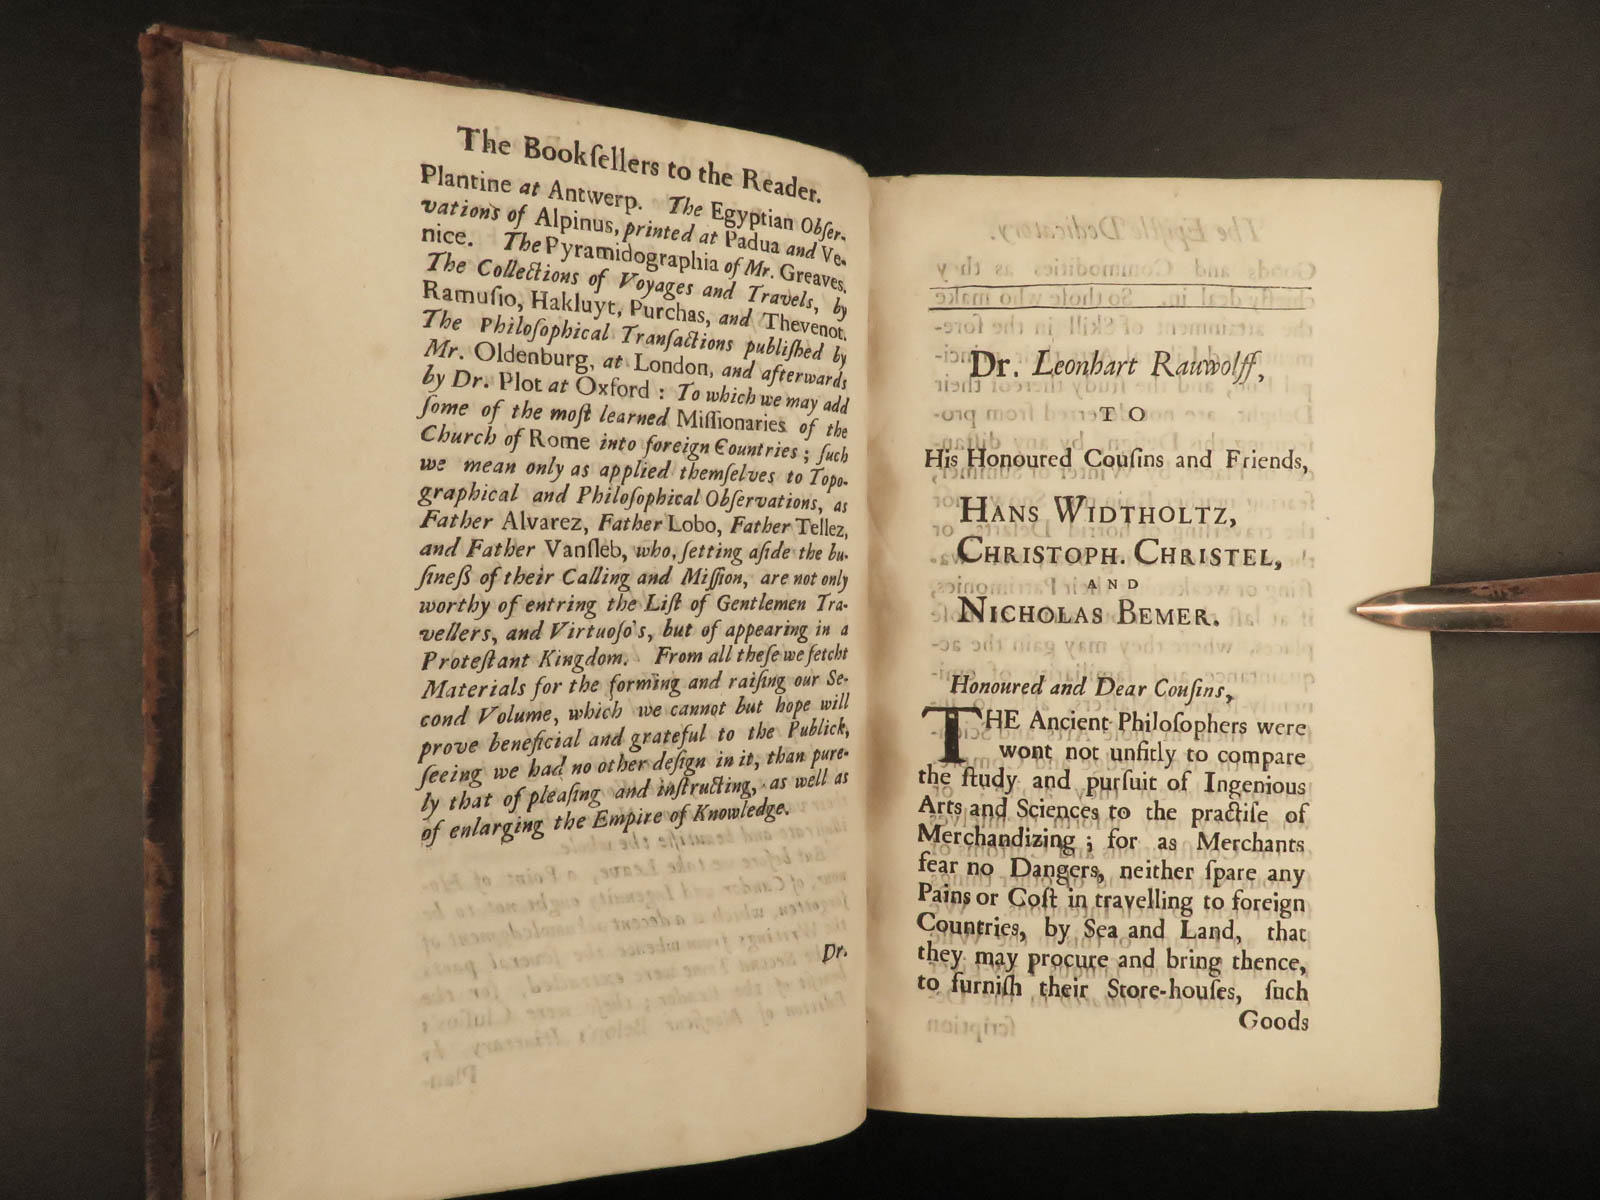 The Bookſellers to the Reader.
Plantine at Antwerp. The Egyptian Obſer-
vations of Alpinus, printed at Padua and Ve-
nice. The Pyramidographia of Mr. Greaves.
The Collections of Voyages and Travels, by
Ramuſio, Hakluyt, Purchas, and Thevenot.
The Philoſophical Tranſactions publiſhed by
Mr. Oldenburg, at London, and afterwards
by Dr. Plot at Oxford : To which we may add
ſome of the moſt learned Miſſionaries of the
Church of Rome into foreign Countries ; ſuch
we mean only as applied themſelves to Topo-
graphical and Philoſophical Obſervations, as
Father Alvarez, Father Lobo, Father Tellez,
and Father Vanſleb, who, ſetting aſide the bu-
ſineſs of their Calling and Miſſion, are not only
worthy of entring the Liſt of Gentlemen Tra-
vellers, and Virtuoſo's, but of appearing in a
Proteſtant Kingdom. From all theſe we fetcht
Materials for the forming and raiſing our Se-
cond Volume, which we cannot but hope will
prove beneficial and grateful to the Publick,
ſeeing we had no other deſign in it, than pure-
ly that of pleaſing and inſtructing, as well as
of enlarging the Empire of Knowledge.
Dr.
Dr. Leonhart Rauwolff,
TO
His Honoured Couſins and Friends,
HANS WIDTHOLTZ,
CHRISTOPH. CHRISTEL,
AND
NICHOLAS BEMER.
Honoured and Dear Couſins,
THE Ancient Philoſophers were
wont not unfitly to compare
the ſtudy and purſuit of Ingenious
Arts and Sciences to the practiſe of
Merchandizing ; for as Merchants
fear no Dangers, neither ſpare any
Pains or Coſt in travelling to foreign
Countries, by Sea and Land, that
they may procure and bring thence,
to furniſh their Store-houſes, ſuch
Goods